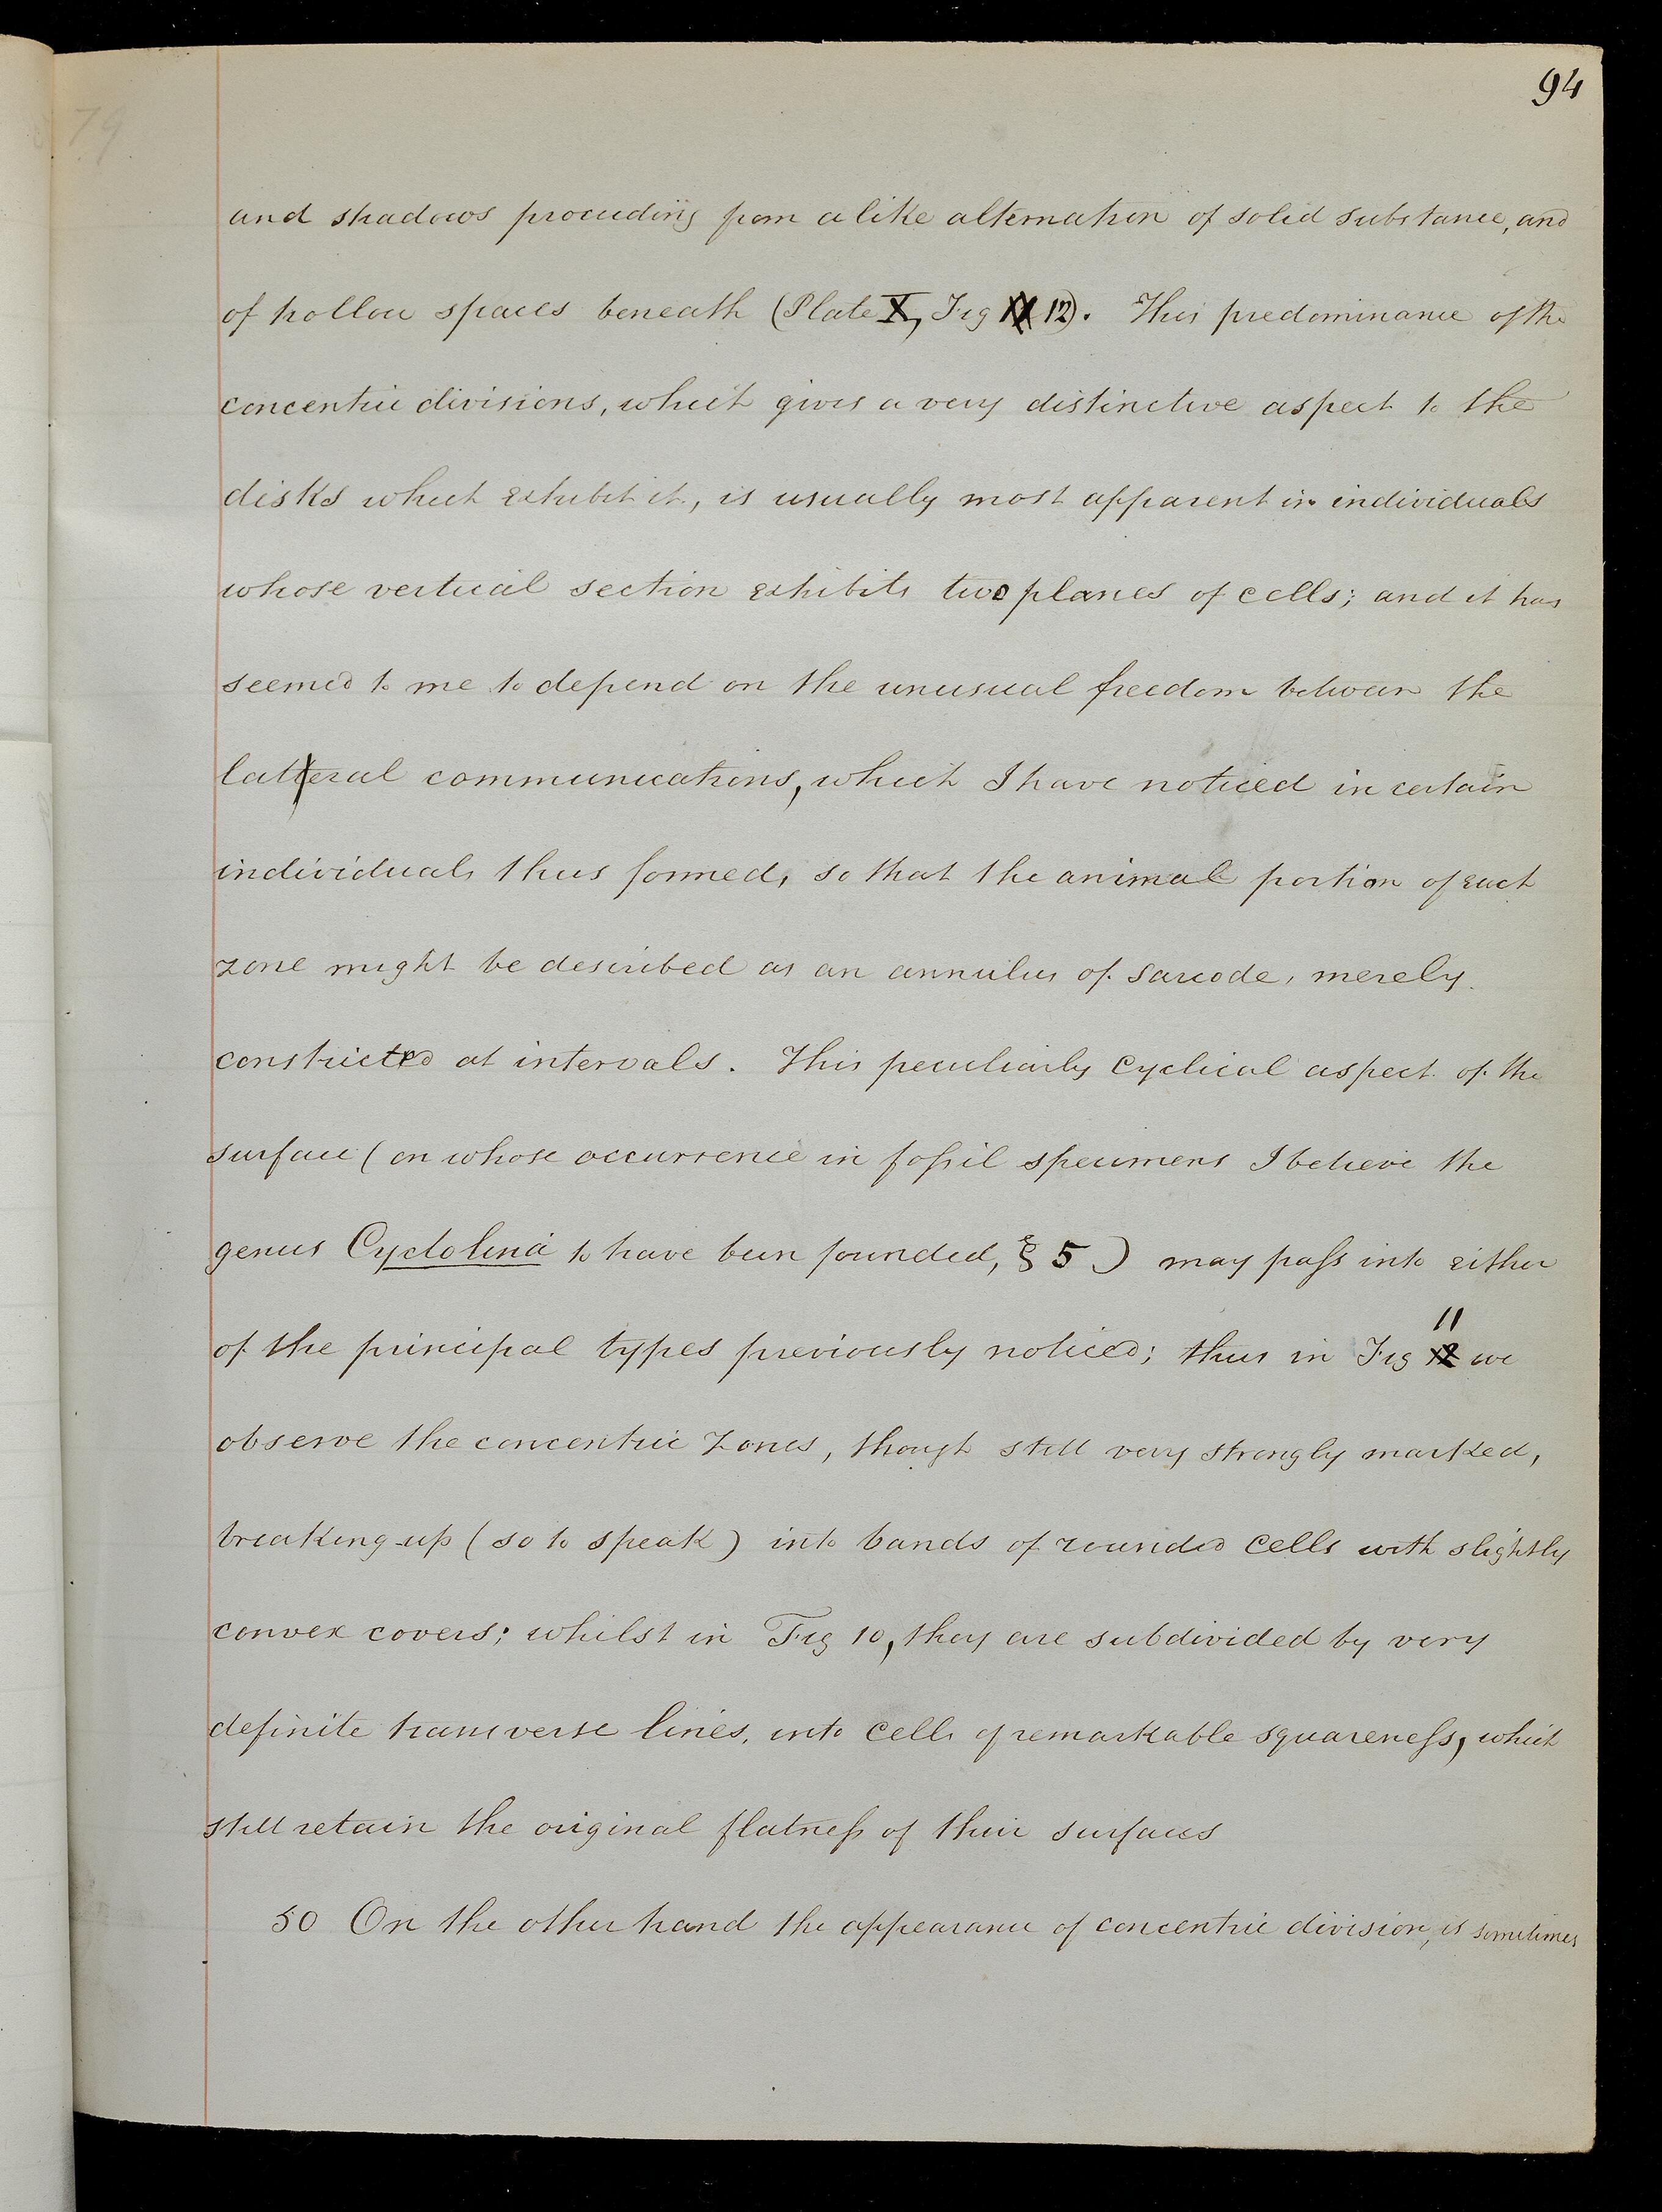 94
79
and shadows proceeding from a like alternation of solid substance, and
of hollow spaces beneath (Plate X, Fig 12). This predominance of the
concentric divisions, which gives a very distinctive aspect to the
disks which exhibit it, is usually most apparent in individuals
whose vertical section exhibits two planes of cells; and it has
seemed to me to depend on the unusual freedom between the
lateral communications, which I have noticed in certain
individuals thus formed, so that the animal portion of each
zone might be described as an annulus of sarcode, merely
constricted at intervals. This peculiarly cyclical aspect of the
surface (on whose occurrence in foſsil specimens I believe the
genus Cyclolina to have been founded, § 5) may paſs into either
of the principal types previously noticed; thus in Fig 11 we
observe the concentric zones, though still very strongly marked,
breaking-up (so to speak) into bands of rounded cells with slightly
convex covers; whilst in Fig 10, they are subdivided by very
definite transverse lines, into cells of remarkable squareneſs, which
still retain the original flatneſs of their surfaces
50 On the other hand the appearance of concentric division, is sometimes